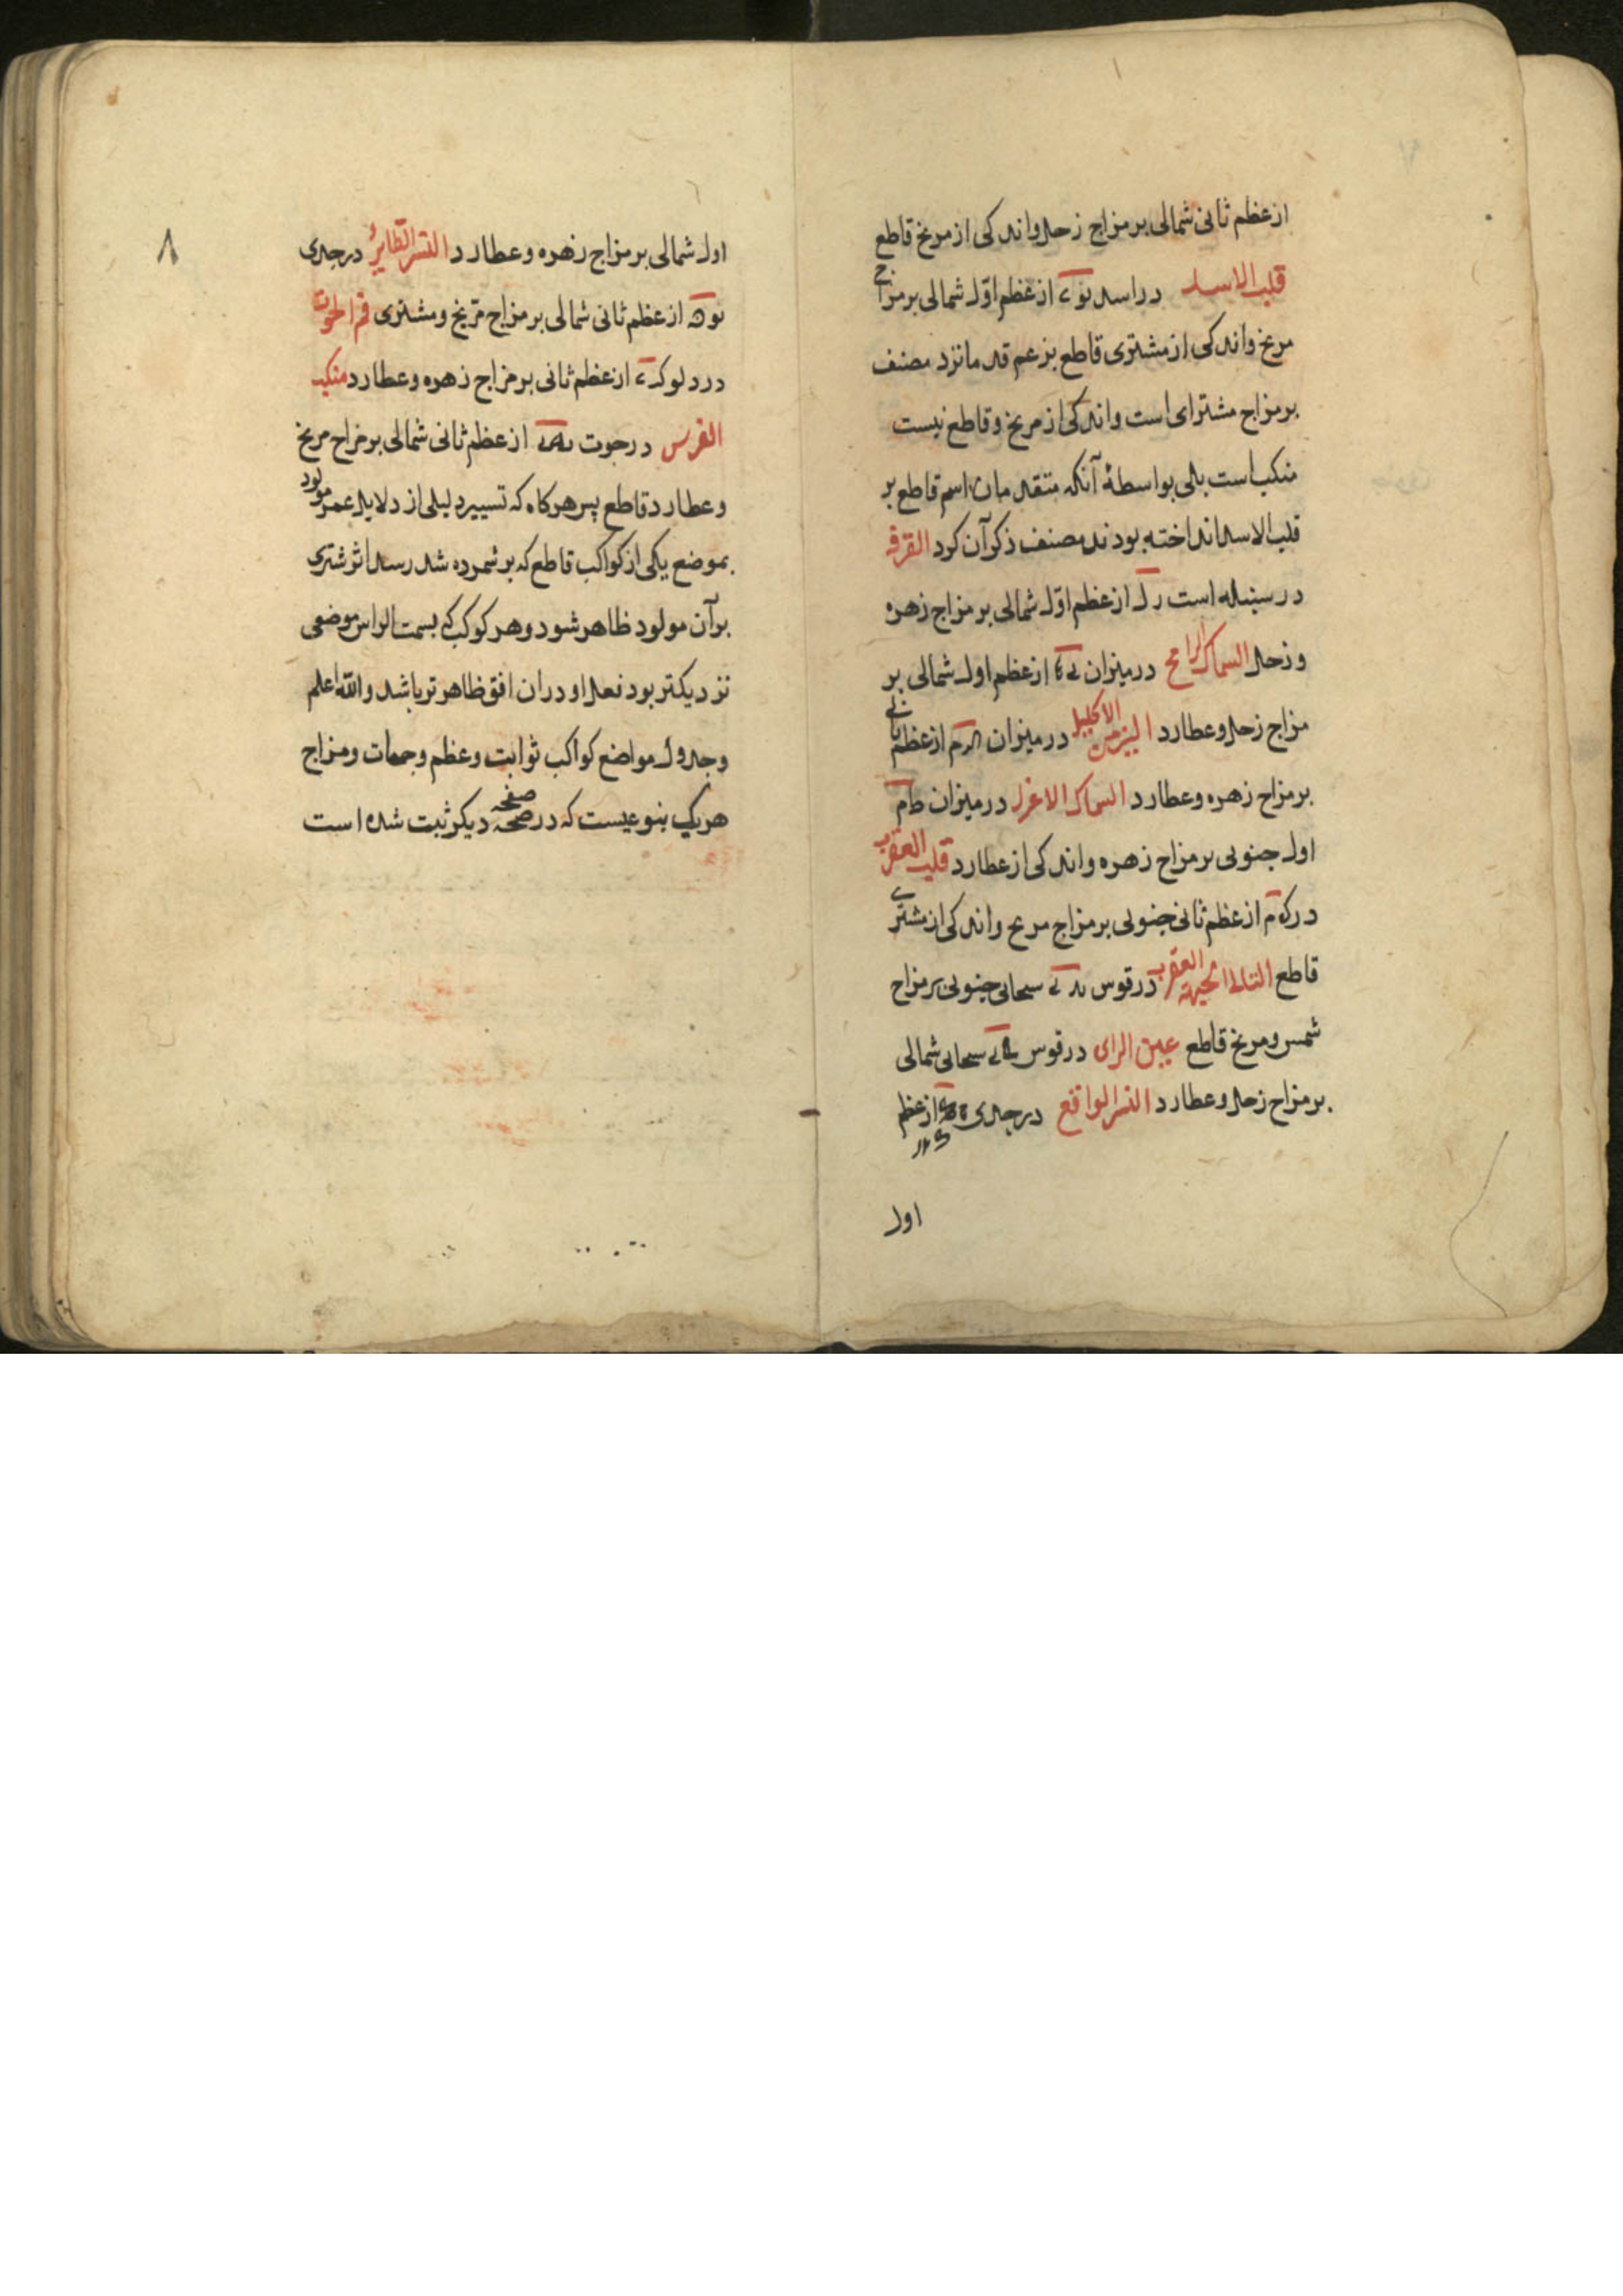 از عظم ثانی شمالی بر مزاج زحل و اندکی از مریخ قاطع
قلب الاسد در اسد از عظم اوّل شمالی بر مزاج
مریخ و اندکی از مشتری قاطع بزعم قدما نزد مصنف
بر مزاج مشترای است و اندکی از مریخ و قاطع نیست
منکب است بلی بواسطهٔ آنکه متقدمان اسم قاطع بر
قلب الاسد انداخته بودند مصنف ذکر آن کرد القرفه
در سنبله است از عظم اوّل شمالی بر مزاج زهره
و زحل السماک الرامح در میزان از عظم اول شمالی بر
مزاج زحل و عطارد الاکلیل در میزان از عظم ثانی
بر مزاج زهره و عطارد السماک الاعزل در میزان
اول جنوبی بر مزاج زهره و اندکی از عطارد قلب العقرب
از عظم ثانی جنوبی بر مزاج مریخ و اندکی از مشتری
قاطع العقرب در قوس سحابی جنوبی بر مزاج
شمس و مریخ قاطع عین الرای در قوس سحابی شمالی
بر مزاج زحل و عطارد النسر الواقع در جدی از عظم
اول
۸
اول شمالی بر مزاج زهره و عطارد النسر الطایر در جدی
از عظم ثانی شمالی بر مزاج مریخ و مشتری فم الحوت
در دلو از عظم ثانی بر مزاج زهره و عطارد منکب
الفرس در حوت از عظم ثانی شمالی بر مزاج مریخ
و عطارد قاطع پس هرکاه که تسییر دلیلی از دلایل عمر مولود
بموضع یکی از کواکب قاطع که بر شمرده شد رسد اثر شتری
بر آن مولود ظاهر شود و هر کوکب که بسمت الراس موضعی
نزدیکتر بود فعل او در ان افق ظاهر تر باشد والله اعلم
و جدول مواضع کواکب ثوابت و عظم و جهات و مزاج
هریک بنوعیست که در صفحه صفحه دیکر ثبت شده است